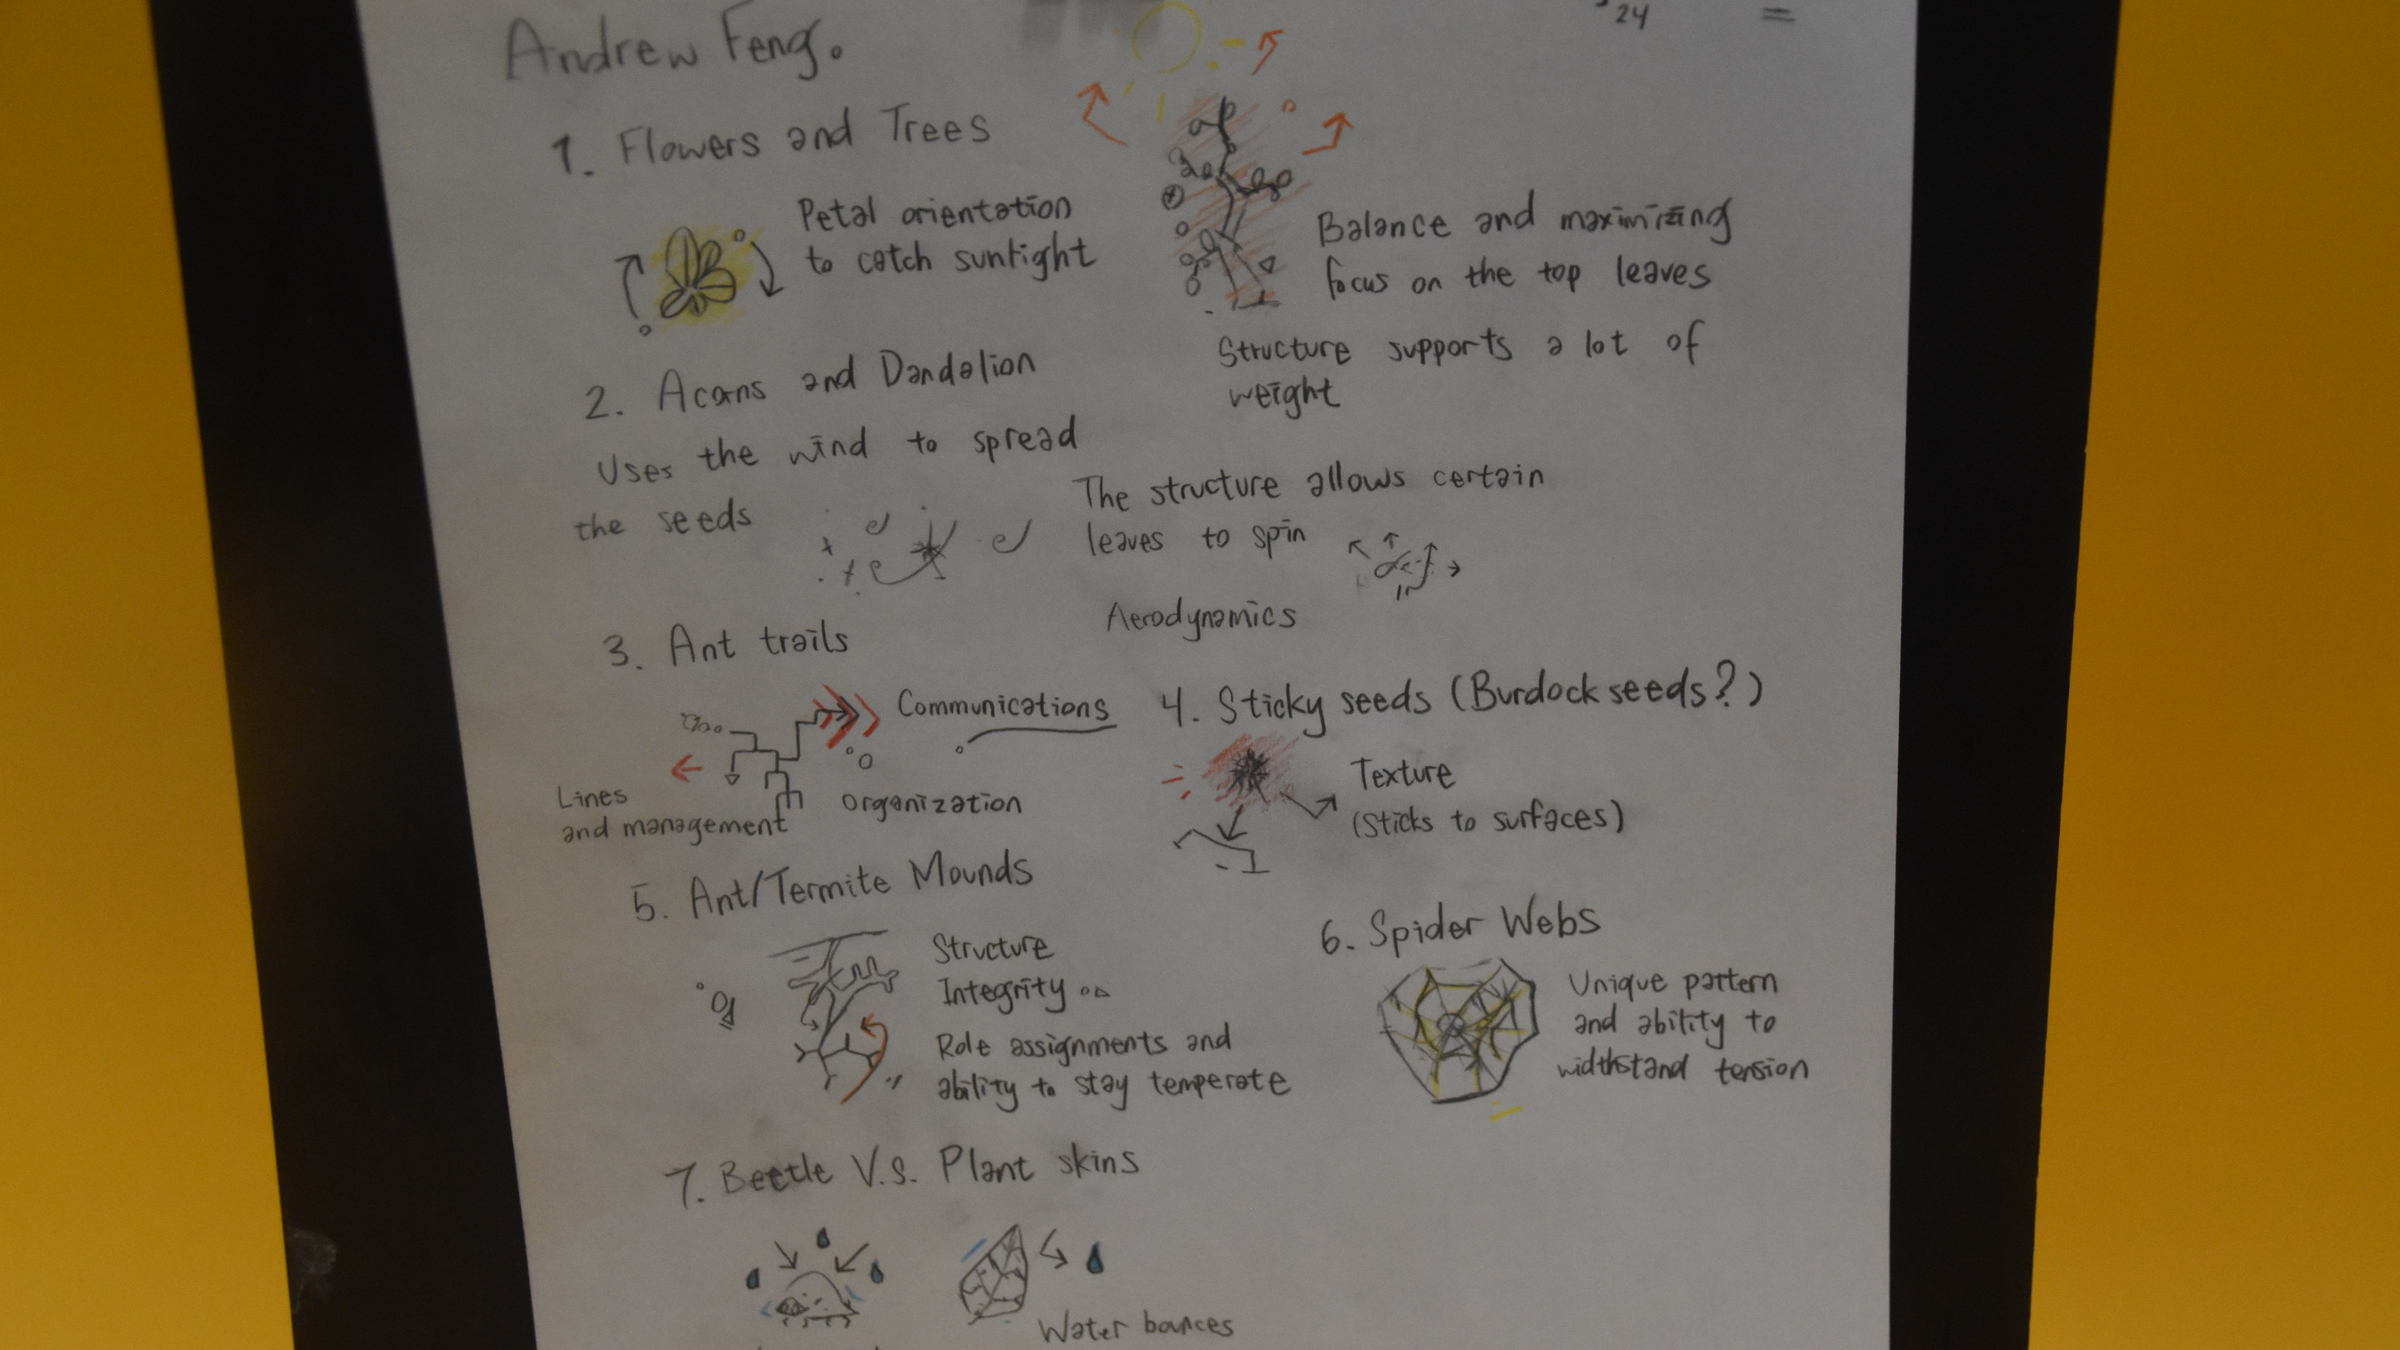 Andrew Feng.
24
=
1. Flowers and Trees
Petal orientation
to catch sunlight
Balance and maximizing
focus on the top leaves
Structure supports a lot of
weight
2. Acorns and Dandalion
Uses the wind to spread
the seeds
The structure allows certain
leaves to spin
Aerodynamics
3. Ant trails
Communications
Lines
and management
organization
4. Sticky seeds (Burdock seeds?)
Texture
(Sticks to surfaces)
5. Ant/Termite Mounds
Structure
Integrity
Role assignments and
ability to stay temperate
6. Spider Webs
Unique pattern
and ability to
widthstand tension
7. Beetle V.S. Plant skins
Water bounces